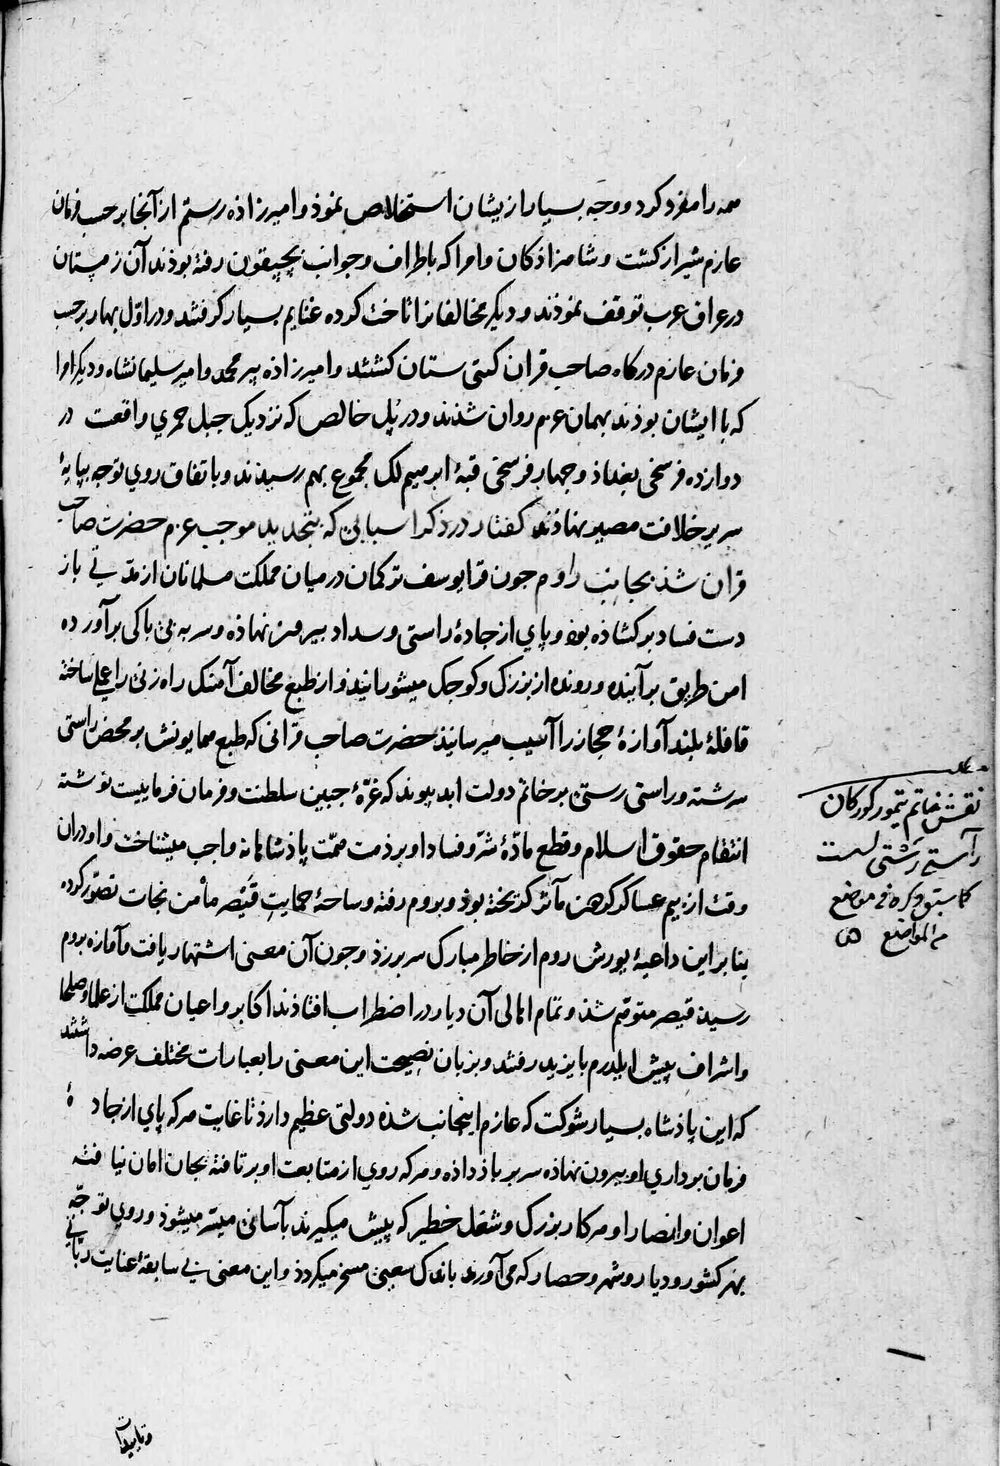 همه را مفرد کرد و وجه بسیار ازیشان استخلاص نموذ و امیرزاذه رستم از آنجا بر حسب فرمان
عازم شیراز کشت و شاهزاذکان و امرا که باطراف و جوانب بچپقون رفته بوذند آن زمستان
در عراق عرب توقف نموذند و دیگر مخالفانرا تاخت کرده غنایم بسیار کرفتند و در اوّل بهار بر حسب
فرمان عازم درکاه صاحب قران کیتی ستان کشتند و امیرزاذه پیر محمد و امیر سلیمانشاه و دیکر امرا
که با ایشان بوذند بهمان عزم روان شذند و در پل خالص که نزدیک جبل حمری واقعست در
دوازده فرسخی بغداذ و چهار فرسخی قبهٔ ابرهیم لک مجموع بهم رسیدند و باتفاق روی توجه بپایهٔ
سریر خلافت مصیر نهاذند کفتار در ذکر اسبابی که بتجدید موجب عزم حضرت صاحب
قران شذ بجانب روم چون قرا یوسف ترکمان در میان مملکت مسلمانان از مدّتی باز
دست فساد بر کشاذه بوذ و پای از جادهٔ راستی و سداد بیرون نهاذه و سر به بی باکی برآورده
امن طریق بر آینده و رونده از بزرک و کوچک میشورانید و از طبع مخالف آهنک راه زنی را عملی ساخته
قافلهٔ بلند آوازهٔ حجاز را آسیب میرسانیذ حضرت صاحب قرانی که طبع همایونش بر محض راستی
سرشته و راستی رستی بر خاتم دولت ابد پیوند که غرّهٔ جبین سلطنت و فرمان فرماییست نوشته
انتقام حقوق اسلام و قطع مادّهٔ شرّ و فساد او بر ذمت همّت پاذشاهانه واجب میشناخت و او دران
وقت از بیم عساکر کردون مآثر کریخته بوذ و بروم رفته و ساحهٔ حمایت قیصر مأمن نجات تصوّر کرده
بنا برین داعیهٔ یورش روم از خاطر مبارک سر برزذ و چون آن معنی اشتهار یافت و آوازه بروم
رسید قیصر متوهم شذ و تمام اهالی آن دیار در اضطراب افتاذند اکابر و اعیان مملکت از علما و صلحا
و اشراف پیش ایلدرم بایزید رفتند و بزبان نصیحت این معنی را بعبارات مختلف عرضه داشتند
که این پاذشاه بسیار شوکت که عازم اینجانب شده دولتی عظیم دارذ تا غایت هر که پای از جادهٔ
فرمان برداری او بیرون نهاذه سر بر باذ داذه و هر که روی از متابعت او برتافته بجان امان نیافته
اعوان و انصار او هر کار بزرک و شغل خطیر که پیش میکیرند بآسانی میسّر میشوذ و روی توجّه
بهر کشور و دیار و شهر و حصار که می آورند باندک سعیی مسخر میکردذ و این معنی بی سابقهٔ عنایت ربّانی
و تأییدات
مطلب
نقش خاتم تیمور کورکان
راستی رستی است
کما سبق ذکره فی موضع
من المواضع